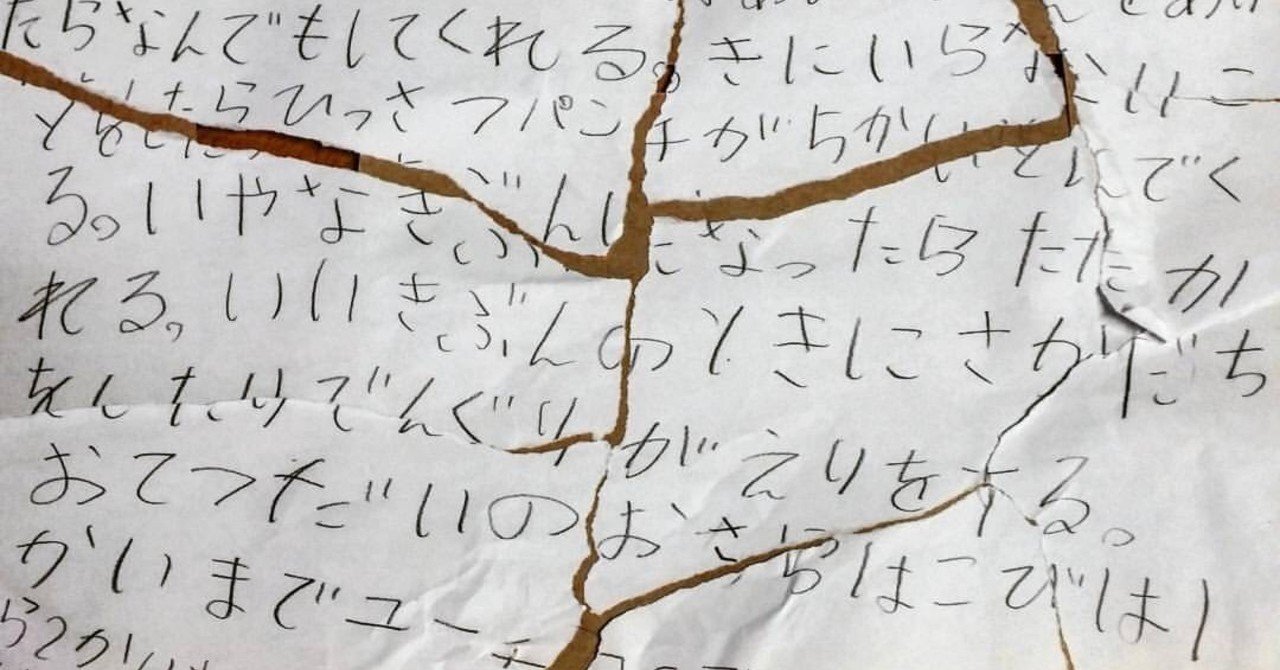 たらなんでもしてくれる。きにいらないこ
とをしたらひっさつパンチが5かいとんでく
る。いやなきぶんになったらたたか
れる。いいきぶんのときにさかだち
をしたりでんぐりがえりをする。
おてつだいのおさらはこびは1
かいまでユーチ